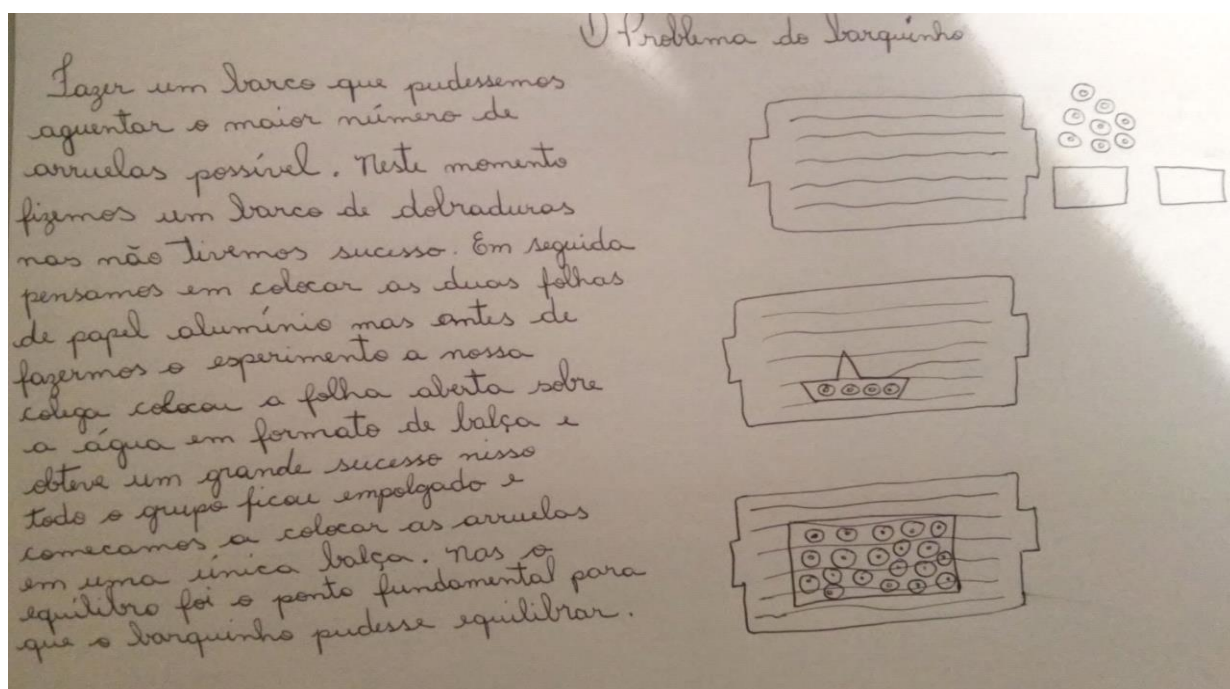 1) Problema do barquinho
Fazer um barco que pudessemos
aguentar o maior número de
arruelas possível. Neste momento
fizemos um barco de dobraduras
mas não tivemos sucesso. Em seguida
pensamos em colocar as duas folhas
de papel alumínio mas antes de
fazermos o experimento a nossa
colega colocou a folha aberta sobre
a água em formato de balça e
obteve um grande sucesso nisso
todo o grupo ficou empolgado e
comecamos a colocar as arruelas
em uma única balça. Mas o
equilibro foi o ponto fundamental para
que o barquinho pudesse equilibrar.